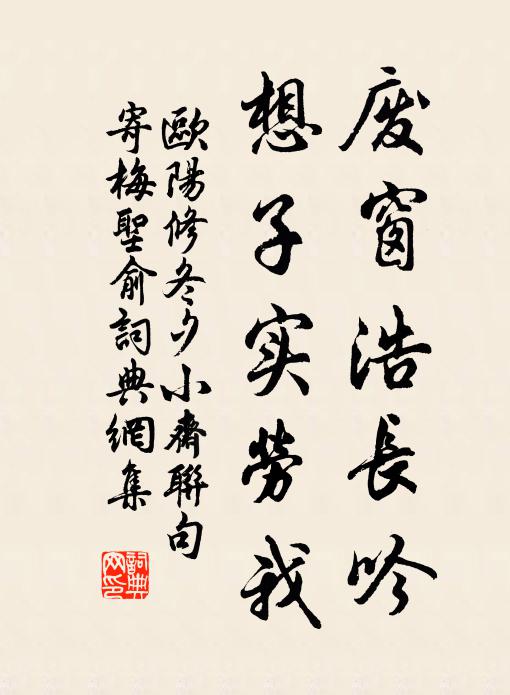 废窗浩長吟
想子实勞我
歐陽修冬夕小齋聯句
寄梅聖俞詞典網集
詞典网印